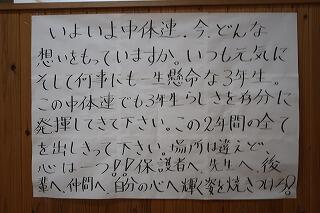 いよいよ中体連．今、どんな
想いをもっていますか。いつも元気に
そして何事にも一生懸命な3年生。
この中体連でも3年生らしさを存分に
発揮してきて下さい。この2年間の全て
を出しきって下さい。場所は違えど、
心は一つ!!保護者へ、先生へ、後
輩へ、仲間へ、自分の心へ輝く姿を焼きつけろ!!